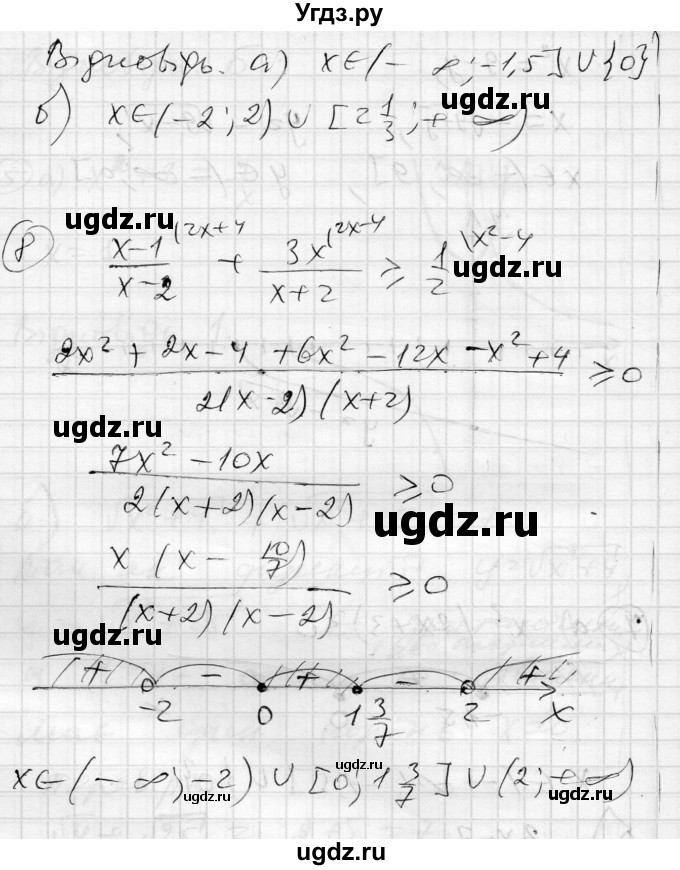 Угдз.ру
Відповідь. а) x∈(-∞;-1,5]∪{0}
ugdz.ru
б) x∈(-2;2)∪[2 1/3;+∞)
ugdz.ru
ugdz.ru
8 (x-1)/(x-2) (2x+4 + 3x/(x+2) (2x-4 ≥ 1/2 \x²-4
(2x²+2x-4+6x²-12x-x²+4)/(2(x-2)(x+2)) ≥0
ugdz.ru
(7x²-10x)/(2(x+2)(x-2)) ≥0
ugdz.ru
x(x-10/7)/((x+2)(x-2)) ≥0
ugdz.ru
+ - + - +
-2 0 1 3/7 2 x
x∈(-∞;-2)∪[0;1 3/7]∪(2;+∞)
ugdz.ru ugdz.ru ugdz.ru
ugdz.ru